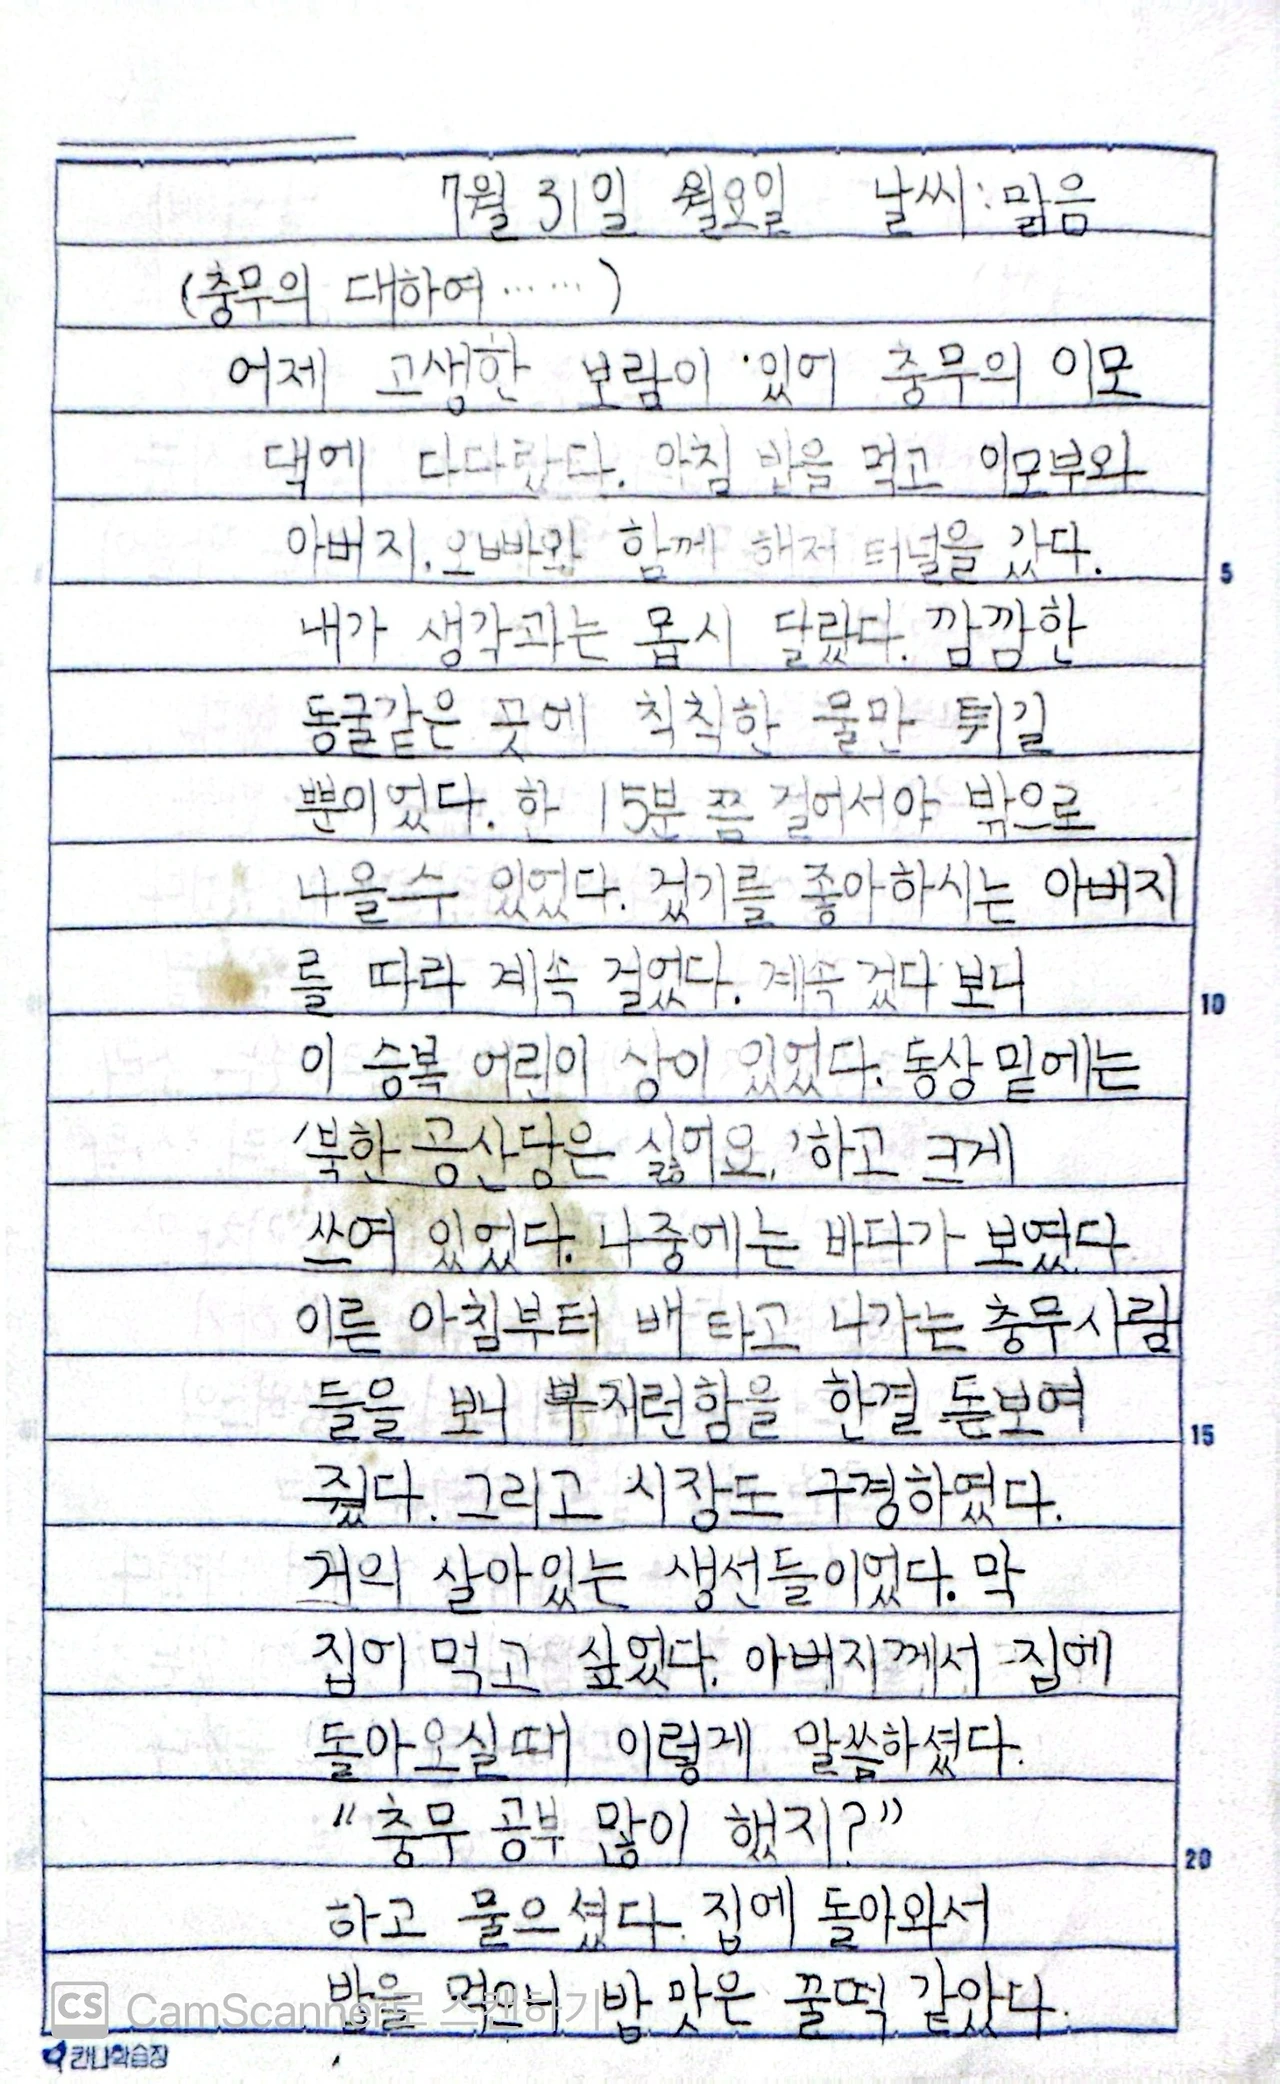 7월 31일 월요일 날씨: 맑음
(충무의 대하여……)
어제 고생한 보람이 있어 충무의 이모
댁에 다다랐다. 아침 밥을 먹고 이모부와
아버지. 오빠와 함께 해저 터널을 갔다.
내가 생각과는 몹시 달랐다. 깜깜한
동굴같은 곳에 칙칙한 물만 튀길
뿐이었다. 한 15분 쯤 걸어서야 밖으로
나올수 있었다. 겄기를 좋아하시는 아버지
를 따라 계속 걸었다. 계속 겄다 보니
이 승복 어린이 상이 있었다. 동상 밑에는
'북한 공산당은 싫어요.' 하고 크게
쓰여 있었다. 나중에는 바다가 보였다.
이른 아침부터 배 타고 나가는 충무사람
들을 보니 부지런함을 한결 돋보여
줬다. 그리고 시장도 구경하였다.
거의 살아있는 생선들이었다. 막
집어 먹고 싶었다. 아버지께서 집에
돌아오실때 이렇게 말씀하셨다.
"충무 공부 많이 했지?"
하고 물으셨다. 집에 돌아와서
밥을 먹으니 밥 맛은 꿀떡 같았다.
5
10
15
20
CS CamScanner로 스캔하기
칸나학습장